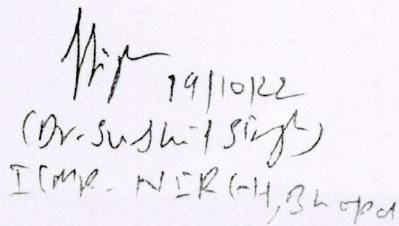 19/10/22
(Dr. Sushil Singh)
ICMR-NIREH, Bhopal